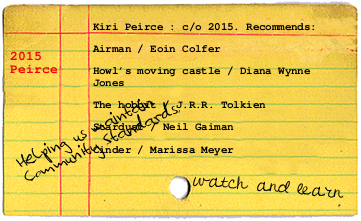 Kiri Peirce : c/o 2015. Recommends:
2015
Peirce
Airman / Eoin Colfer
Howl's moving castle / Diana Wynne
Jones
The hobbit / J.R.R. Tolkien
Stardust / Neil Gaiman
Cinder / Marissa Meyer
Helping us maintain
Community standards.
watch and learn